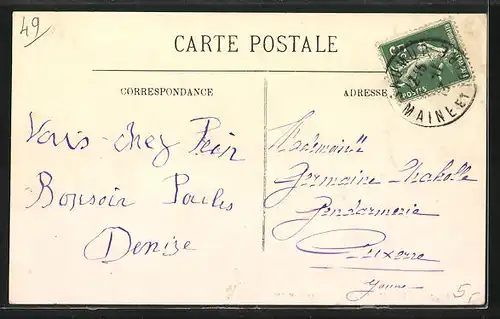 49
CARTE POSTALE
CORRESPONDANCE
ADRESSE
MAINE ET
POSTES
Vais chez
Bonsoir
Denise
Mademoiselle
Germaine
Gendarmerie
Auxerre
Yonne
5,-